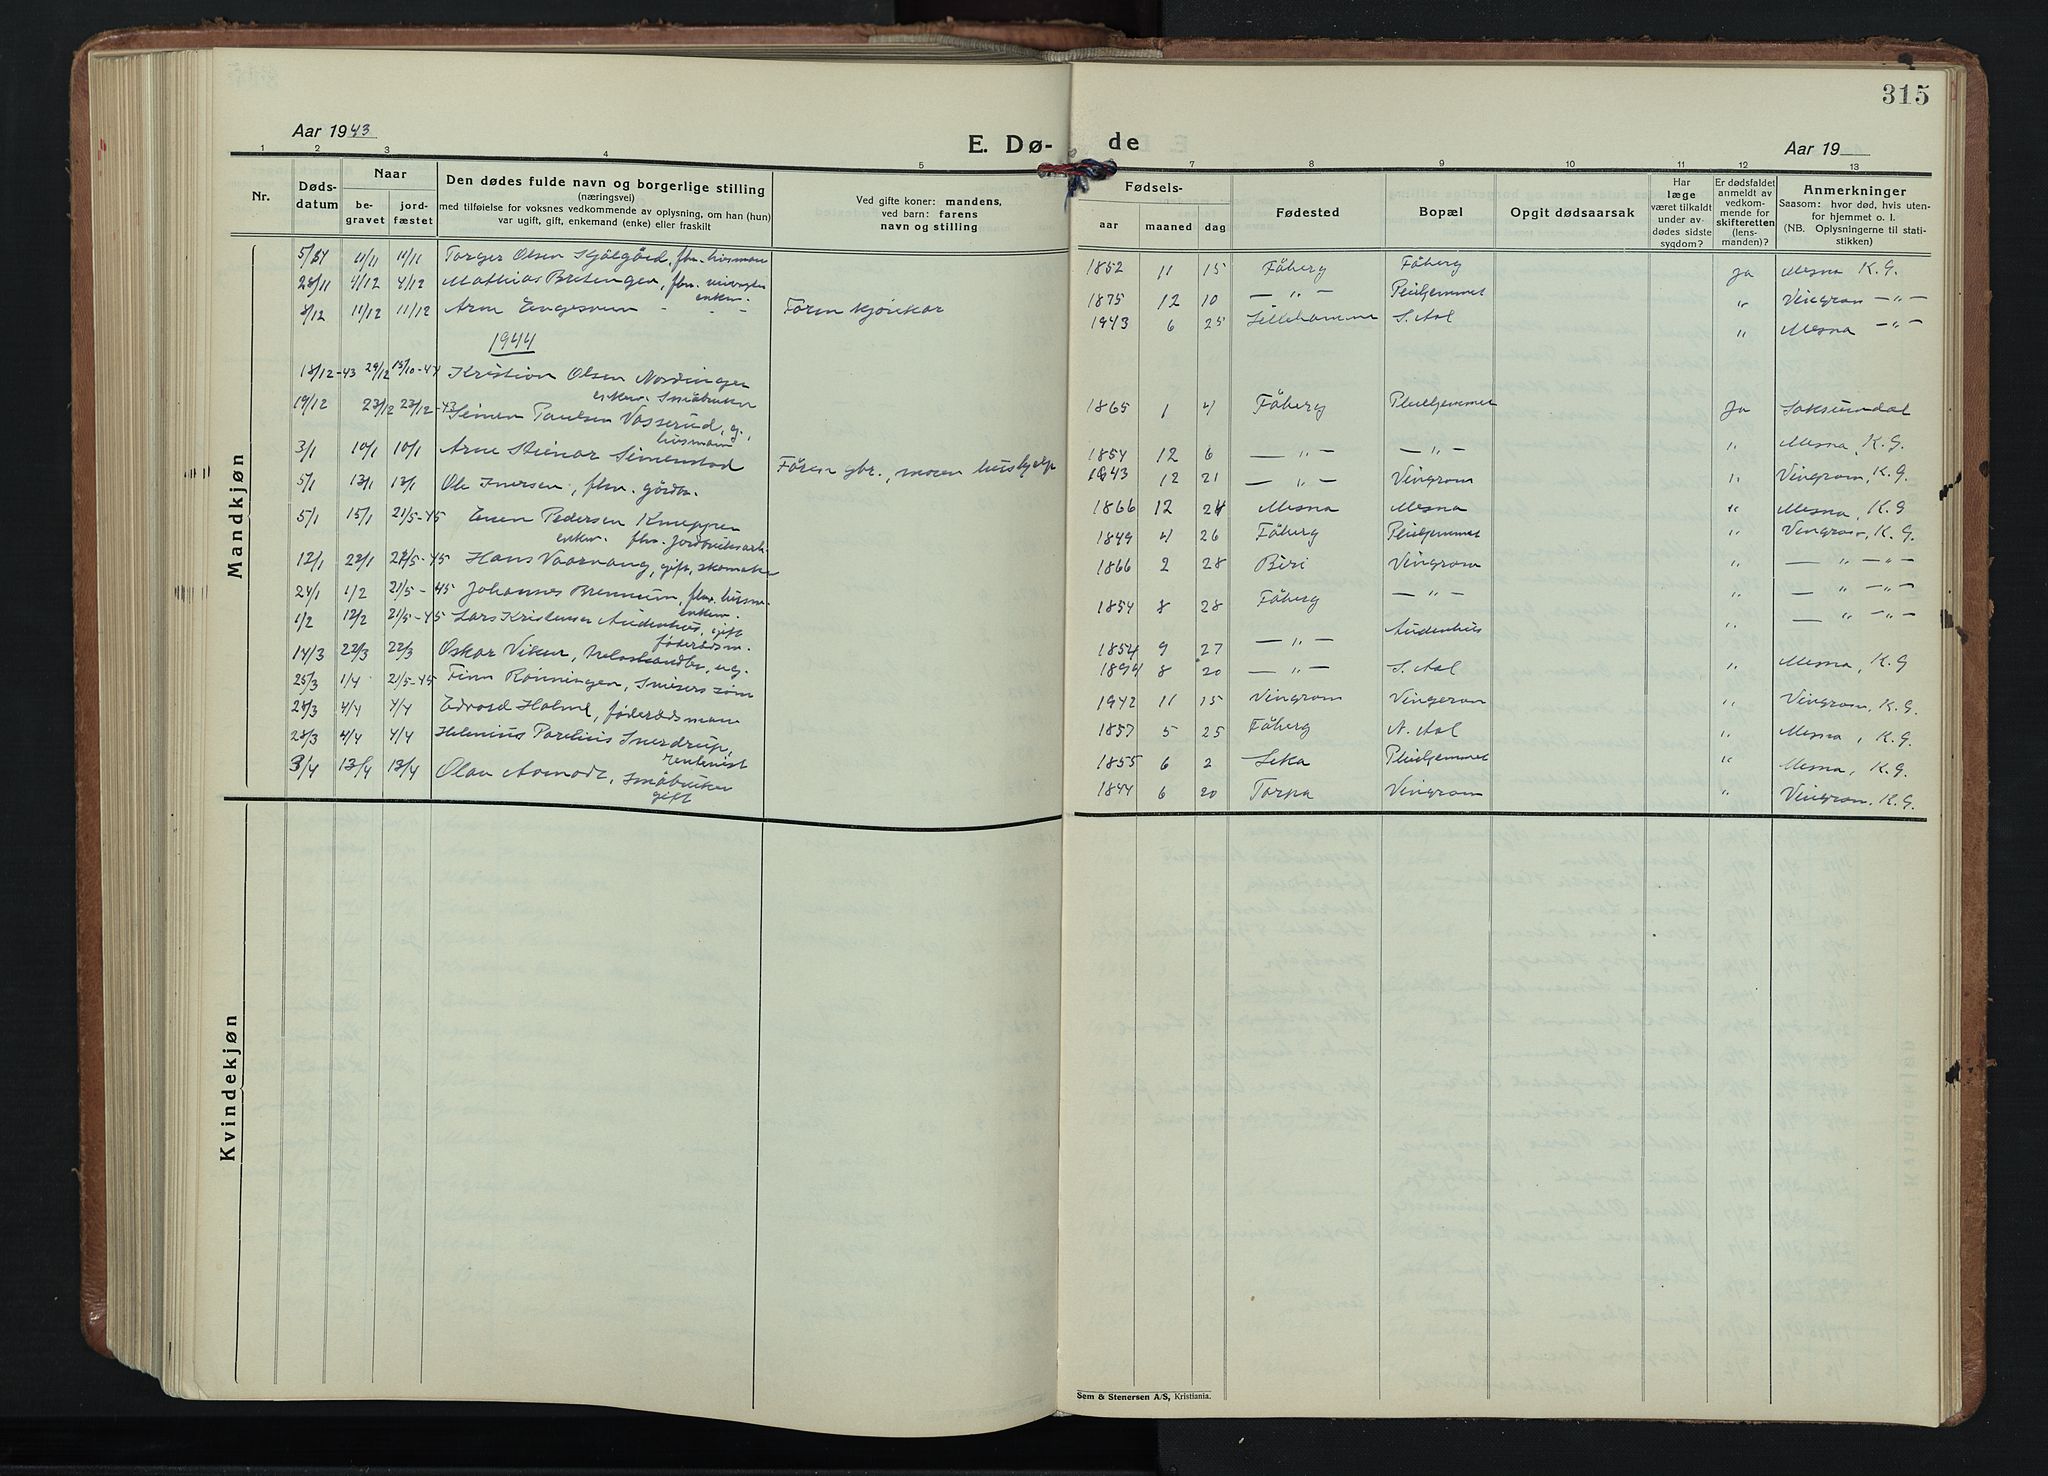 315
Aar 1943
E. Dø-
de
Aar 19
1 2 3 4 5 7 8 9 10 11 12 13
Nr.
Døds-
datum
Naar
be-
gravet
jord-
fæstet
Den dødes fulde navn og borgerlige stilling
(næringsvei)
med tilføielse for voksnes vedkommende av oplysning, om han (hun)
var ugift, gift, enkemand (enke) eller fraskilt
Ved gifte koner: mandens,
ved barn: farens
navn og stilling
Fødsels-
aar maaned dag
Fødested
Bopæl
Opgit dødsaarsak
Har
læge
været tilkaldt
under av-
dødes sidste
sygdom?
Er dødsfaldet
anmeldt av
vedkom-
mende for
skifteretten
(lens-
manden)?
Anmerkninger
Saasom: hvor død, hvis uten-
for hjemmet o. l.
(NB. Oplysningerne til stati-
stikken)
Mandkjøn
11/11 11/11 Torger Olsen fhv. husmann 1852 11 15 Fåberg Fåberg Ja Mesna K.G.
28/11 4/12 4/12 Mathias fhv. 1875 12 10 — " — Pleiehjemmet " Vingrom — " —
enkem.
8/12 11/12 11/12 Arne Engesveen - - - 1943 6 25 Lillehammer S. Aal " Mesna — " —
1944
18/12-43 29/12 Kristian Olsen Nordingen 1865 1 4 Fåberg Pleiehjemmet Ja Saksumdal
enkem. Småbruker
19/12 23/12 23/12-43 Simen Paulsen Vasserud, g., 1854 12 6 — " — — " — " Mesna, K.G.
husmann
3/1 10/1 10/1 Arne Steinar Simenstad Faren gbr., moren hushjelp 1943 12 21 — " — Vingrom " Vingrom, K.G.
5/1 13/1 13/1 Ole Iversen, fhv. gårdbr. 1866 12 24 Mesna Mesna " Mesna, K.G
5/1 15/1 21/5-45 Even Pedersen Kneppen 1849 4 26 Fåberg Pleiehjemmet " Vingrom, K.G.
enkem. fhv. jordbruksarb.
12/1 22/1 21/5-45 Hans Vaarvang, gift, skomaker 1866 2 28 Biri Vingrom " — " — " —
24/1 1/2 21/5-45 Johannes Brennum, fhv. husm. 1854 8 28 Fåberg — " — " — " — " —
enkem.
1/2 12/2 21/5-45 Lars Kristensen Audenhus, gift 1854 9 27 — " — Audenhus " — " — " —
føderådsm.
14/3 22/3 22/3 Oskar Viken, ug. 1894 8 20 — " — S. Aal " Mesna, K.G
25/3 1/4 21/5-45 Finn Rønningen, snekers sønn 1942 11 15 Vingrom Vingerom " Vingrom, K.G.
28/3 4/4 4/4 Edvard Holme, føderådsmann 1857 5 25 Fåberg N. Aal " Mesna, K.G.
28/3 4/4 4/4 Helenius Parelius Sverdrup, 1855 6 2 Leka Pleiehjemmet " Mesna, K.G.
rentenist
3/4 13/4 13/4 Olav Aamodt, småbruker 1844 6 20 Torpa Vingrom " Vingrom, K.G.
gift
Kvindekjøn
Sem & Stenersen A/S, Kristiania.